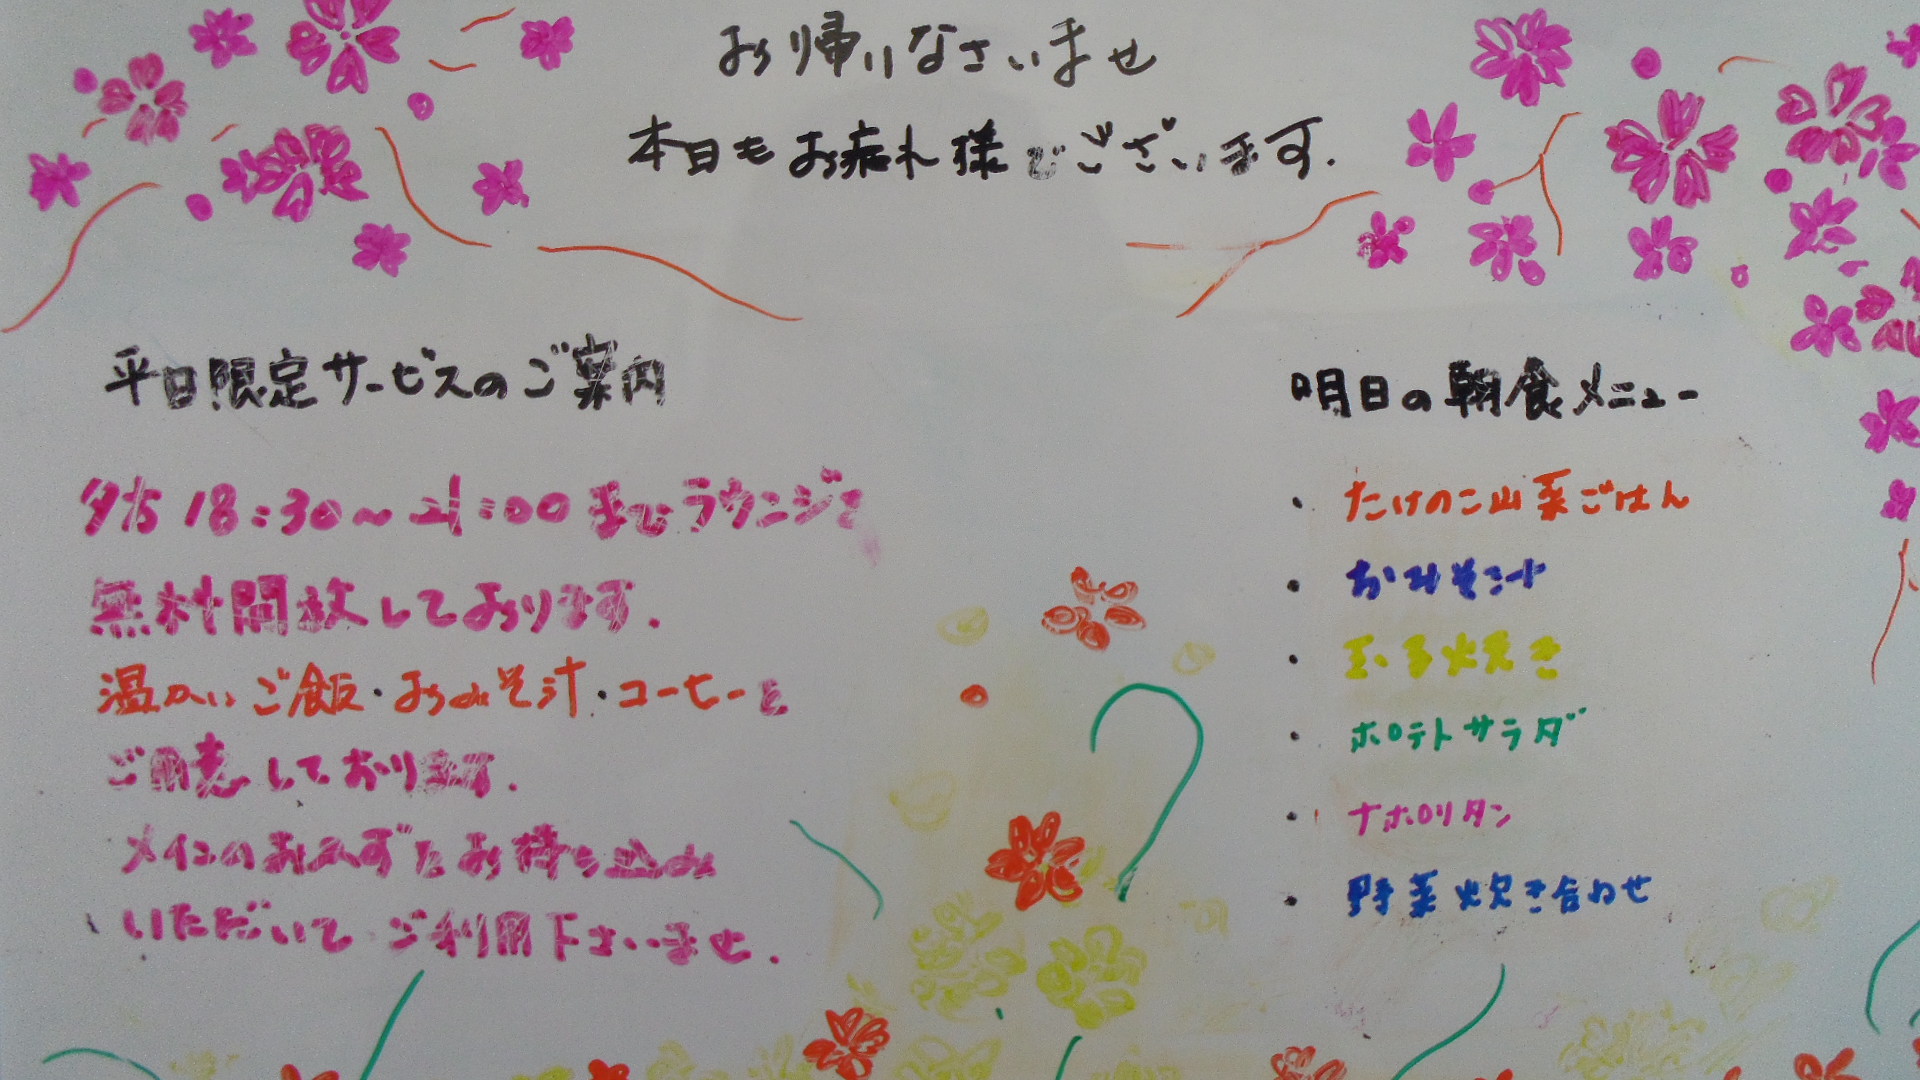 お帰りなさいませ
本日もお疲れ様でございます.
平日限定サービスのご案内
夕方 18:30〜21:00までラウンジを
無料開放しております.
温かいご飯・おみそ汁・コーヒーを
ご用意しております.
メインのおかずをお持ち込み
いただいて ご利用下さいませ.
明日の朝食メニュー
・たけのこ山菜ごはん
・おみそ汁
・玉子焼き
・ポテトサラダ
・ナポリタン
・野菜炊き合わせ